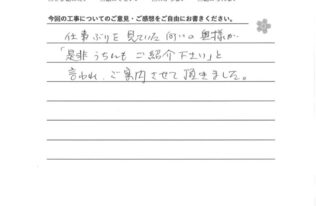 今回の工事についてのご意見・ご感想をご自由にお書きください。
仕事ぶりを見ていた向いの奥様が
「是非うちにもご紹介下さい」と
言われ、ご案内させて頂きました。